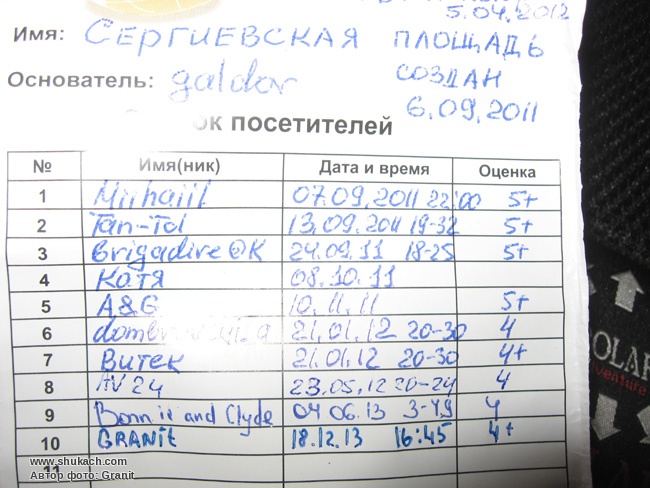 5.04.2012
Имя: СЕРГИЕВСКАЯ ПЛОЩАДЬ
Основатель: galdor СОЗДАН
6.09.2011
ок посетителей
№ Имя(ник) Дата и время Оценка
1 Mihaiil 07.09.2011 22:00 5+
2 Tan-Tol 13.09.2011 19-32 5+
3 Brigadire@K 24.09.11 18-25 5+
4 Катя 08.10.11
5 A&G 10.11.11 5+
6 21.01.12 20-30 4
7 Витек 21.01.12 20-30 4+
8 AV 24 23.05.12 20-24 4
9 Bonnie and Clyde 04 06.13 3-49 4
10 GRANit 18.12.13 16:45 4+
11
OLAR
venture
www.shukach.com
Автор фото: Granit